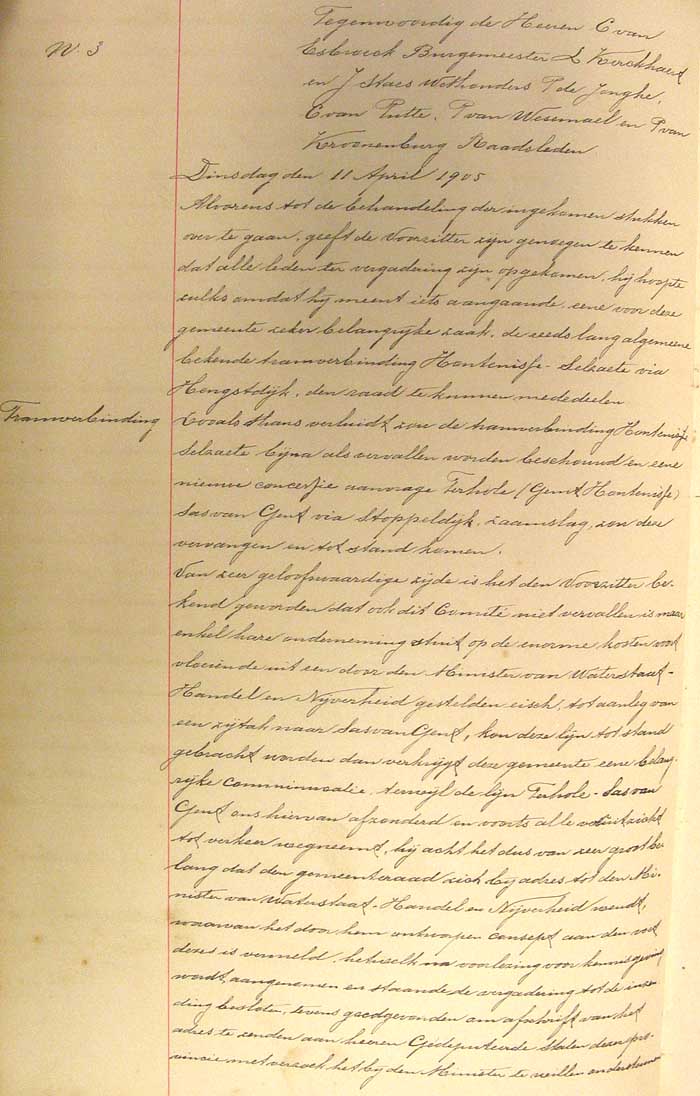 N. 3
Tegenwoordig de Heeren C van
Esbroeck Burgemeester L Kerckhaert
en J Staes Wethouders P de Jonghe,
C van Putte, P van Wesemael en P van
Kroonenburg Raadsleden
Dinsdag den 11 April 1905
Alvorens tot de behandeling der ingekomen stukken
over te gaan, geeft de Voorzitter zijn genoegen te kennen
dat alle leden ter vergadering zijn opgekomen, hij hoopte
zulks omdat hij meent iets aangaande eene voor deze
gemeente zeker belangrijke zaak, de reeds lang algemeene
bekende tramverbinding Hontenisse - Selzaete via
Hengstdijk, den raad te kunnen mededeelen
Tramverbinding
Zooals thans verluidt zou de tramverbinding Hontenisse
Selzaete bijna als vervallen worden beschouwd en eene
nieuwe concessie aanvrage Terhole (Gemt Hontenisse)
Sas van Gent via Stoppeldijk, Zaamslag, zou deze
vervangen en tot stand komen.
Van zeer geloofwaardige zijde is het den Voorzitter be-
kend geworden dat ook dit Comité niet vervallen is maar
enkel hare onderneming stuit op de enorme kosten voort
vloeiende uit een door den Minister van Waterstaat -
Handel en Nijverheid gestelden eisch, tot aanleg van
een zijtak naar Sas van Gent, kon deze lijn tot stand
gebracht worden dan verkrijgt deze gemeente eene belang-
rijke communicatie, terwijl de lijn Terhole - Sas van
Gent ons hiervan afzonderd en voorts alle uitzicht
tot verkeer wegneemt, hij acht het dus van zeer groot be
lang dat den gemeenteraad zich bij adres tot den Mi-
nister van Waterstaat - Handel en Nijverheid wendt,
waarvan het door hem ontworpen consept aan den voet
dezes is vermeld, hetwelk na voorlezing voor kennisgeving
wordt aangenomen en staande de vergadering tot de inzen
ding besloten, tevens goedgevonden om afschrift van het
adres te zenden aan heeren Gedeputeerde Staten dezer pro-
vincie met verzoek het bij den Minister te willen ondersteunen